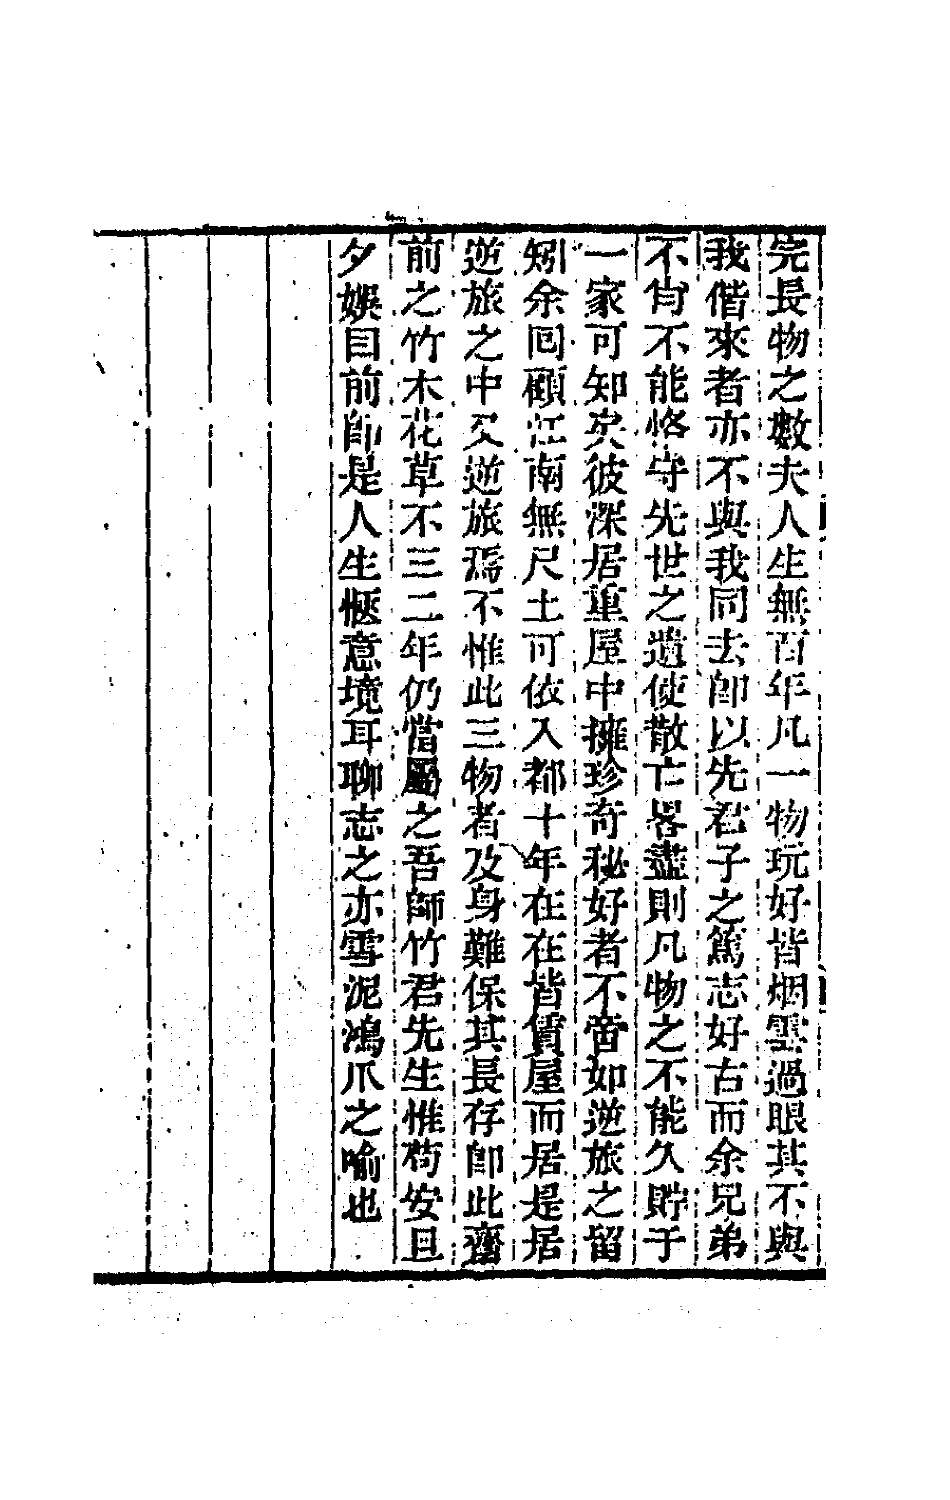 完長物之數夫人生無百年凡一物玩好皆烟雲過眼其不與
我偕來者亦不與我同去卽以先君子之篤志好古而余兄弟
不肖不能恪守先世之遺使散亡畧盡則凡物之不能久貯于
一家可知矣彼深居重屋中擁珍奇秘好者不啻如逆旅之留
矧余回顧江南無尺土可依入都十年在在皆賃屋而居是居
逆旅之中又逆旅焉不惟此三物者及身難保其長存卽此齋
前之竹木花草不三二年仍當屬之吾師竹君先生惟苟安旦
夕娛目前卽是人生愜意境耳聊志之亦雪泥鴻爪之喻也